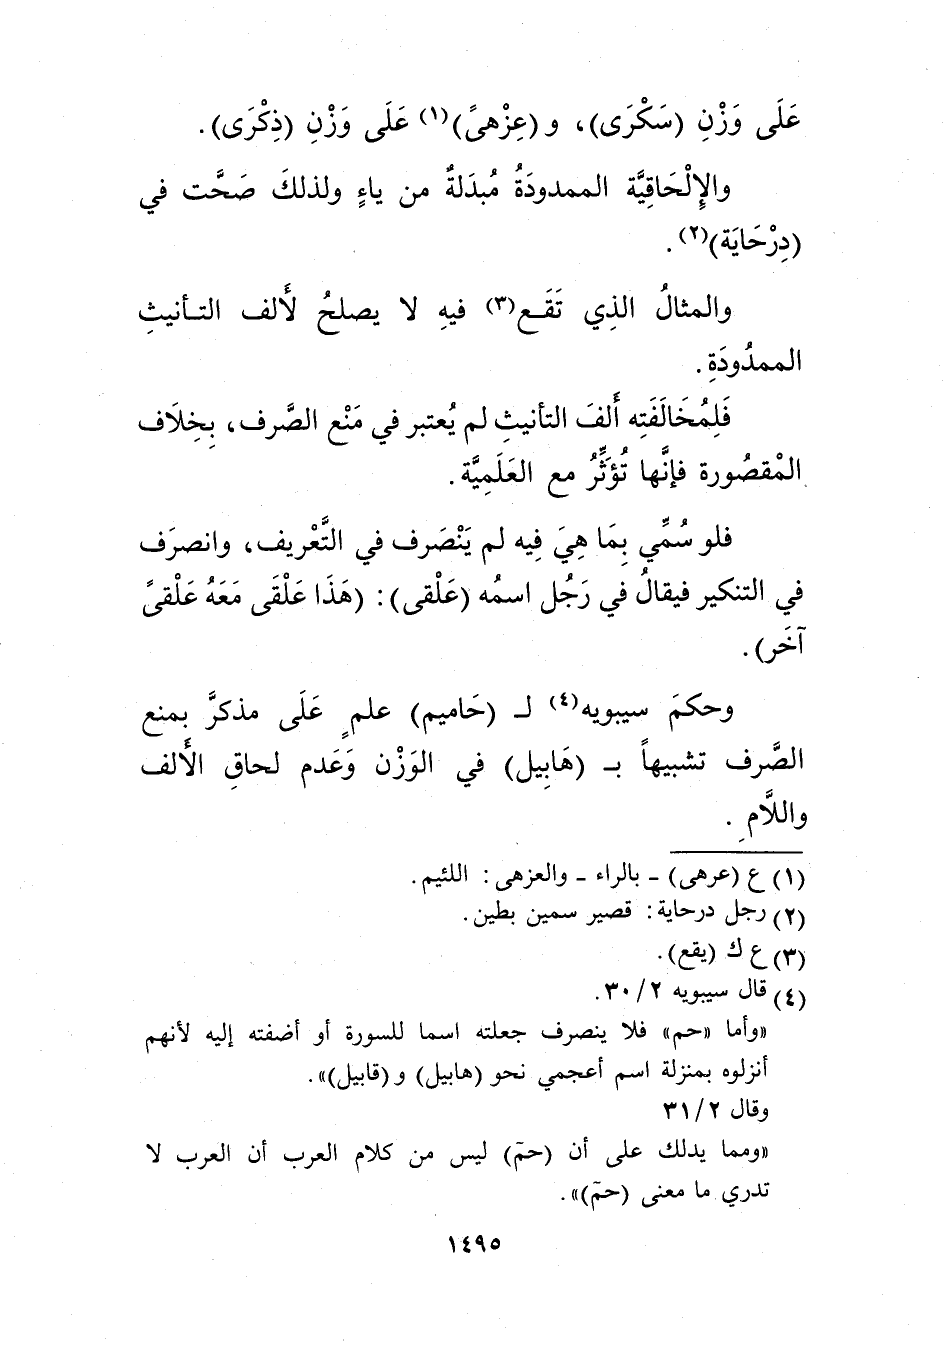 عَلَى وَزْنِ (سَكْرَى)، و (عِزْهىً)(١) عَلَى وَزْنِ (ذِكْرَى).
والإِلْحَاقِيَّة الممدودَةُ مُبدَلةٌ من ياءٍ ولذلكَ صَحَّت في
(دِرْحَايَة)(٢).
والمثالُ الذِي تَقَـع(٣) فيهِ لا يصلحُ لأَلف التـأنيثِ
الممدُودَةِ.
فَلِمُخَالَفَتِه أَلفَ التأنيثِ لم يُعتبر في مَنْع الصَّرف، بِخِلَاف
المْقصُورة فإنَّها تُؤَثِّرُ مع العَلَمِيَّة.
فلو سُمِّي بِمَا هِيَ فِيه لم يَنْصَرف في التَّعْريف، وانصرَف
في التنكير فيقالُ في رَجُل اسمُه (عَلْقى): (هَذَا عَلْقَى مَعَهُ عَلْقىً
آخَر).
وحكمَ سيبويه(٤) لـ (حَاميم) علمٍ عَلَى مذكرَّ بمنع
الصَّرف تشبيهاً بـ (هَابِيل) في الوَزْن وَعَدم لحاقِ الأَلف
واللَّامِ.
(١) ع (عرهى) - بالراء - والعزهى: اللئيم.
(٢) رجل درحاية: قصير سمين بطين.
(٣) ع ك (يقع).
(٤) قال سيبويه ٢/ ٣٠.
«وأما «حم» فلا ينصرف جعلته اسما للسورة أو أضفته إليه لأنهم
أنزلوه بمنزلة اسم أعجمي نحو (هابيل) و (قابيل)».
وقال ٢/ ٣١
«ومما يدلك على أن (حمٓ) ليس من كلام العرب أن العرب لا
تدري ما معنى (حمٓ)».
١٤٩٥